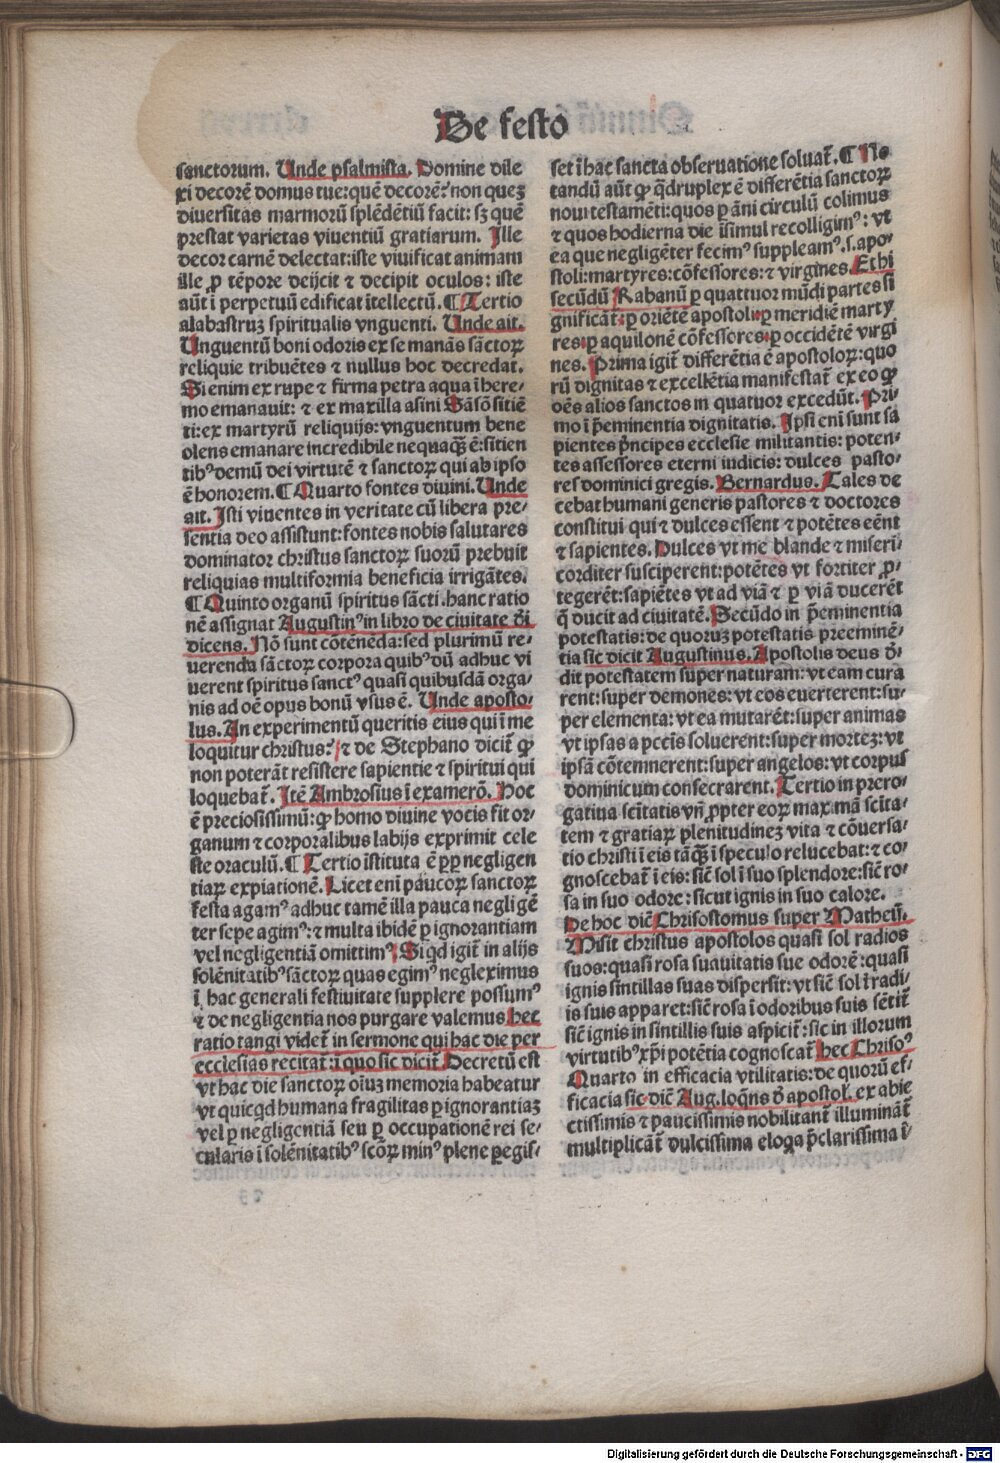 De festo
sanctorum. Unde psalmista. Domine dile
xi decorē domus tue: quē decorē? non quez
diuersitas marmorū splēdētiū facit: sz quē
prestat varietas viuentiū gratiarum. Ille
decor carnē delectat: iste viuificat animam
ille ꝓ tēpore deijcit ⁊ decipit oculos: iste
aūt ī perpetuū edificat ītellectū. ¶ Tertio
alabastruz spiritualis vnguenti. Unde ait.
Unguentū boni odoris ex se manās sāctoꝝ
reliquie tribuētes ⁊ nullus hoc decredat.
Si enim ex rupe ⁊ firma petra aqua ī here-
mo emanauit: ⁊ ex maxilla asini Sāsō sitiē
ti: ex martyrū reliquijs: vnguentum bene
olens emanare incredibile nequaqꝫ ē: sitien
tibꝰ demū dei virtutē ⁊ sanctoꝝ qui ab ipso
ē honorem. ¶ Quarto fontes diuini. Unde
ait. Isti viuentes in veritate cū libera pre-
sentia deo assistunt: fontes nobis salutares
dominator christus sanctoꝝ suorū prebuit
reliquias multiformia beneficia irrigātes.
¶ Quinto organū spiritus sācti. hanc ratio
nē assignat Augustinꝰ in libro de ciuitate d̄i
dicens. Nō sunt cōtēnēda: sed plurimū re-
uerenda sāctoꝝ corpora quibꝰ dū adhuc vi
uerent spiritus sanctꝰ quasi quibusdā orga-
nis ad oē opus bonū vsus ē. Unde aposto-
lus. An experimentū queritis eius qui ī me
loquitur christus? ⁊ de Stephano dicit̄ ꝙ
non poterāt resistere sapientie ⁊ spiritui qui
loquebat̄. Itē Ambrosius ī examerō. Hoc
ē preciosissimū: ꝙ homo diuine vocis fit or-
ganum ⁊ corporalibus labijs exprimit cele
ste oraculū. ¶ Tertio īstituta ē ꝓpꝑ negligen
tiaꝝ expiationē. Licet enī paucoꝝ sanctoꝝ
festa agamꝰ adhuc tamē illa pauca negligē
ter sepe agimꝰ: ⁊ multa ibidē ꝑ ignorantiam
vel negligentiā omittimꝰ. Si qd igit̄ in alijs
solēnitatibꝰ sāctoꝝ quas egimꝰ negleximus
ī hac generali festiuitate supplere possumꝰ
⁊ de negligentia nos purgare valemus hec
ratio tangi videt̄ in sermone qui hac die per
ecclesias recitat̄: ī quo sic dicit̄. Decretū est
vt hac die sanctoꝝ oīuz memoria habeatur
vt quicqd humana fragilitas ꝑ ignorantiaz
vel ꝑ negligentiā seu ꝑ occupationē rei se-
cularis ī solēnitatibꝰ scōꝝ minꝰ plene ꝑegis-
set ī hac sancta obseruatione soluat̄. ¶ No
tandū aūt ꝙ q̄druplex ē differētia sanctoꝝ
noui testamēti: quos ꝑ āni circulū colimus
⁊ quos hodierna die īsimul recolligimꝰ: vt
ea que negligēter fecimꝰ suppleamꝰ. s. apo-
stoli: martyres: cōfessores: ⁊ virgines. Et hi
secūdū Rabanū ꝑ quattuor mūdi partes si
gnificāt̄: ꝑ oriētē apostoli: ꝑ meridiē marty
res: ꝑ aquilonē cōfessores: ꝑ occidētē virgi
nes. Prima igit̄ differētia ē apostoloꝝ: quo
rū dignitas ⁊ excellētia manifestat̄ ex eo ꝙ
oēs alios sanctos in quatuor excedūt. Pri-
mo ī p̄eminentia dignitatis. Ipsi enī sunt sa
pientes p̄ncipes ecclesie militantis: poten-
tes assessores eterni iudicis: dulces pasto-
res dominici gregis. Bernardus. Tales de
cebat humani generis pastores ⁊ doctores
constitui qui ⁊ dulces essent ⁊ potētes eēnt
⁊ sapientes. Dulces vt me blande ⁊ miseri-
corditer susciperent: potētes vt fortiter ꝓ-
tegerēt: sapiētes vt ad viā ⁊ ꝑ viā ducerēt
q̄ ducit ad ciuitatē. Secūdo in p̄eminentia
potestatis: de quoruz potestatis preeminē-
tia sic dicit Augustinus. Apostolis deus d̄-
dit potestatem super naturam: vt eam cura
rent: super demones: vt eos euerterent: su-
per elementa: vt ea mutarēt: super animas
vt ipsas a pccīs soluerent: super mortez: vt
ipsā cōtemnerent: super angelos: vt corpus
dominicum consecrarent. Tertio in prero-
gatiua scītatis vn̄ ꝓpter eoꝝ maximā scīta-
tem ⁊ gratiaꝝ plenitudinez vita ⁊ cōuersa-
tio christi ī eis tāqꝫ ī speculo relucebat: ⁊ co-
gnoscebat̄ ī eis: sic̄ sol ī suo splendore: sic̄ ro-
sa in suo odore: sicut ignis in suo calore.
De hoc dic̄ Chrisostomus super Matheū.
Misit christus apostolos quasi sol radios
suos: quasi rosa suauitatis sue odorē: quasi
ignis sintillas suas dispersit: vt sic̄ sol ī radi-
is suis apparet: sic̄ rosa ī odoribus suis sētit̄
sic̄ ignis in sintillis suis aspicit̄: sic in illorum
virtutibꝰ xp̄i potētia cognoscat̄ hec Chrisoꝰ
Quarto in efficacia vtilitatis: de quorū ef-
ficacia sic dic̄ Aug. loqn̄s d̄ apostol̄. ex abie
ctissimis ⁊ paucissimis nobilitant̄ illumināt̄
multiplicāt̄ dulcissima eloqa p̄clarissima ī-
Digitalisierung gefördert durch die Deutsche Forschungsgemeinschaft - DFG